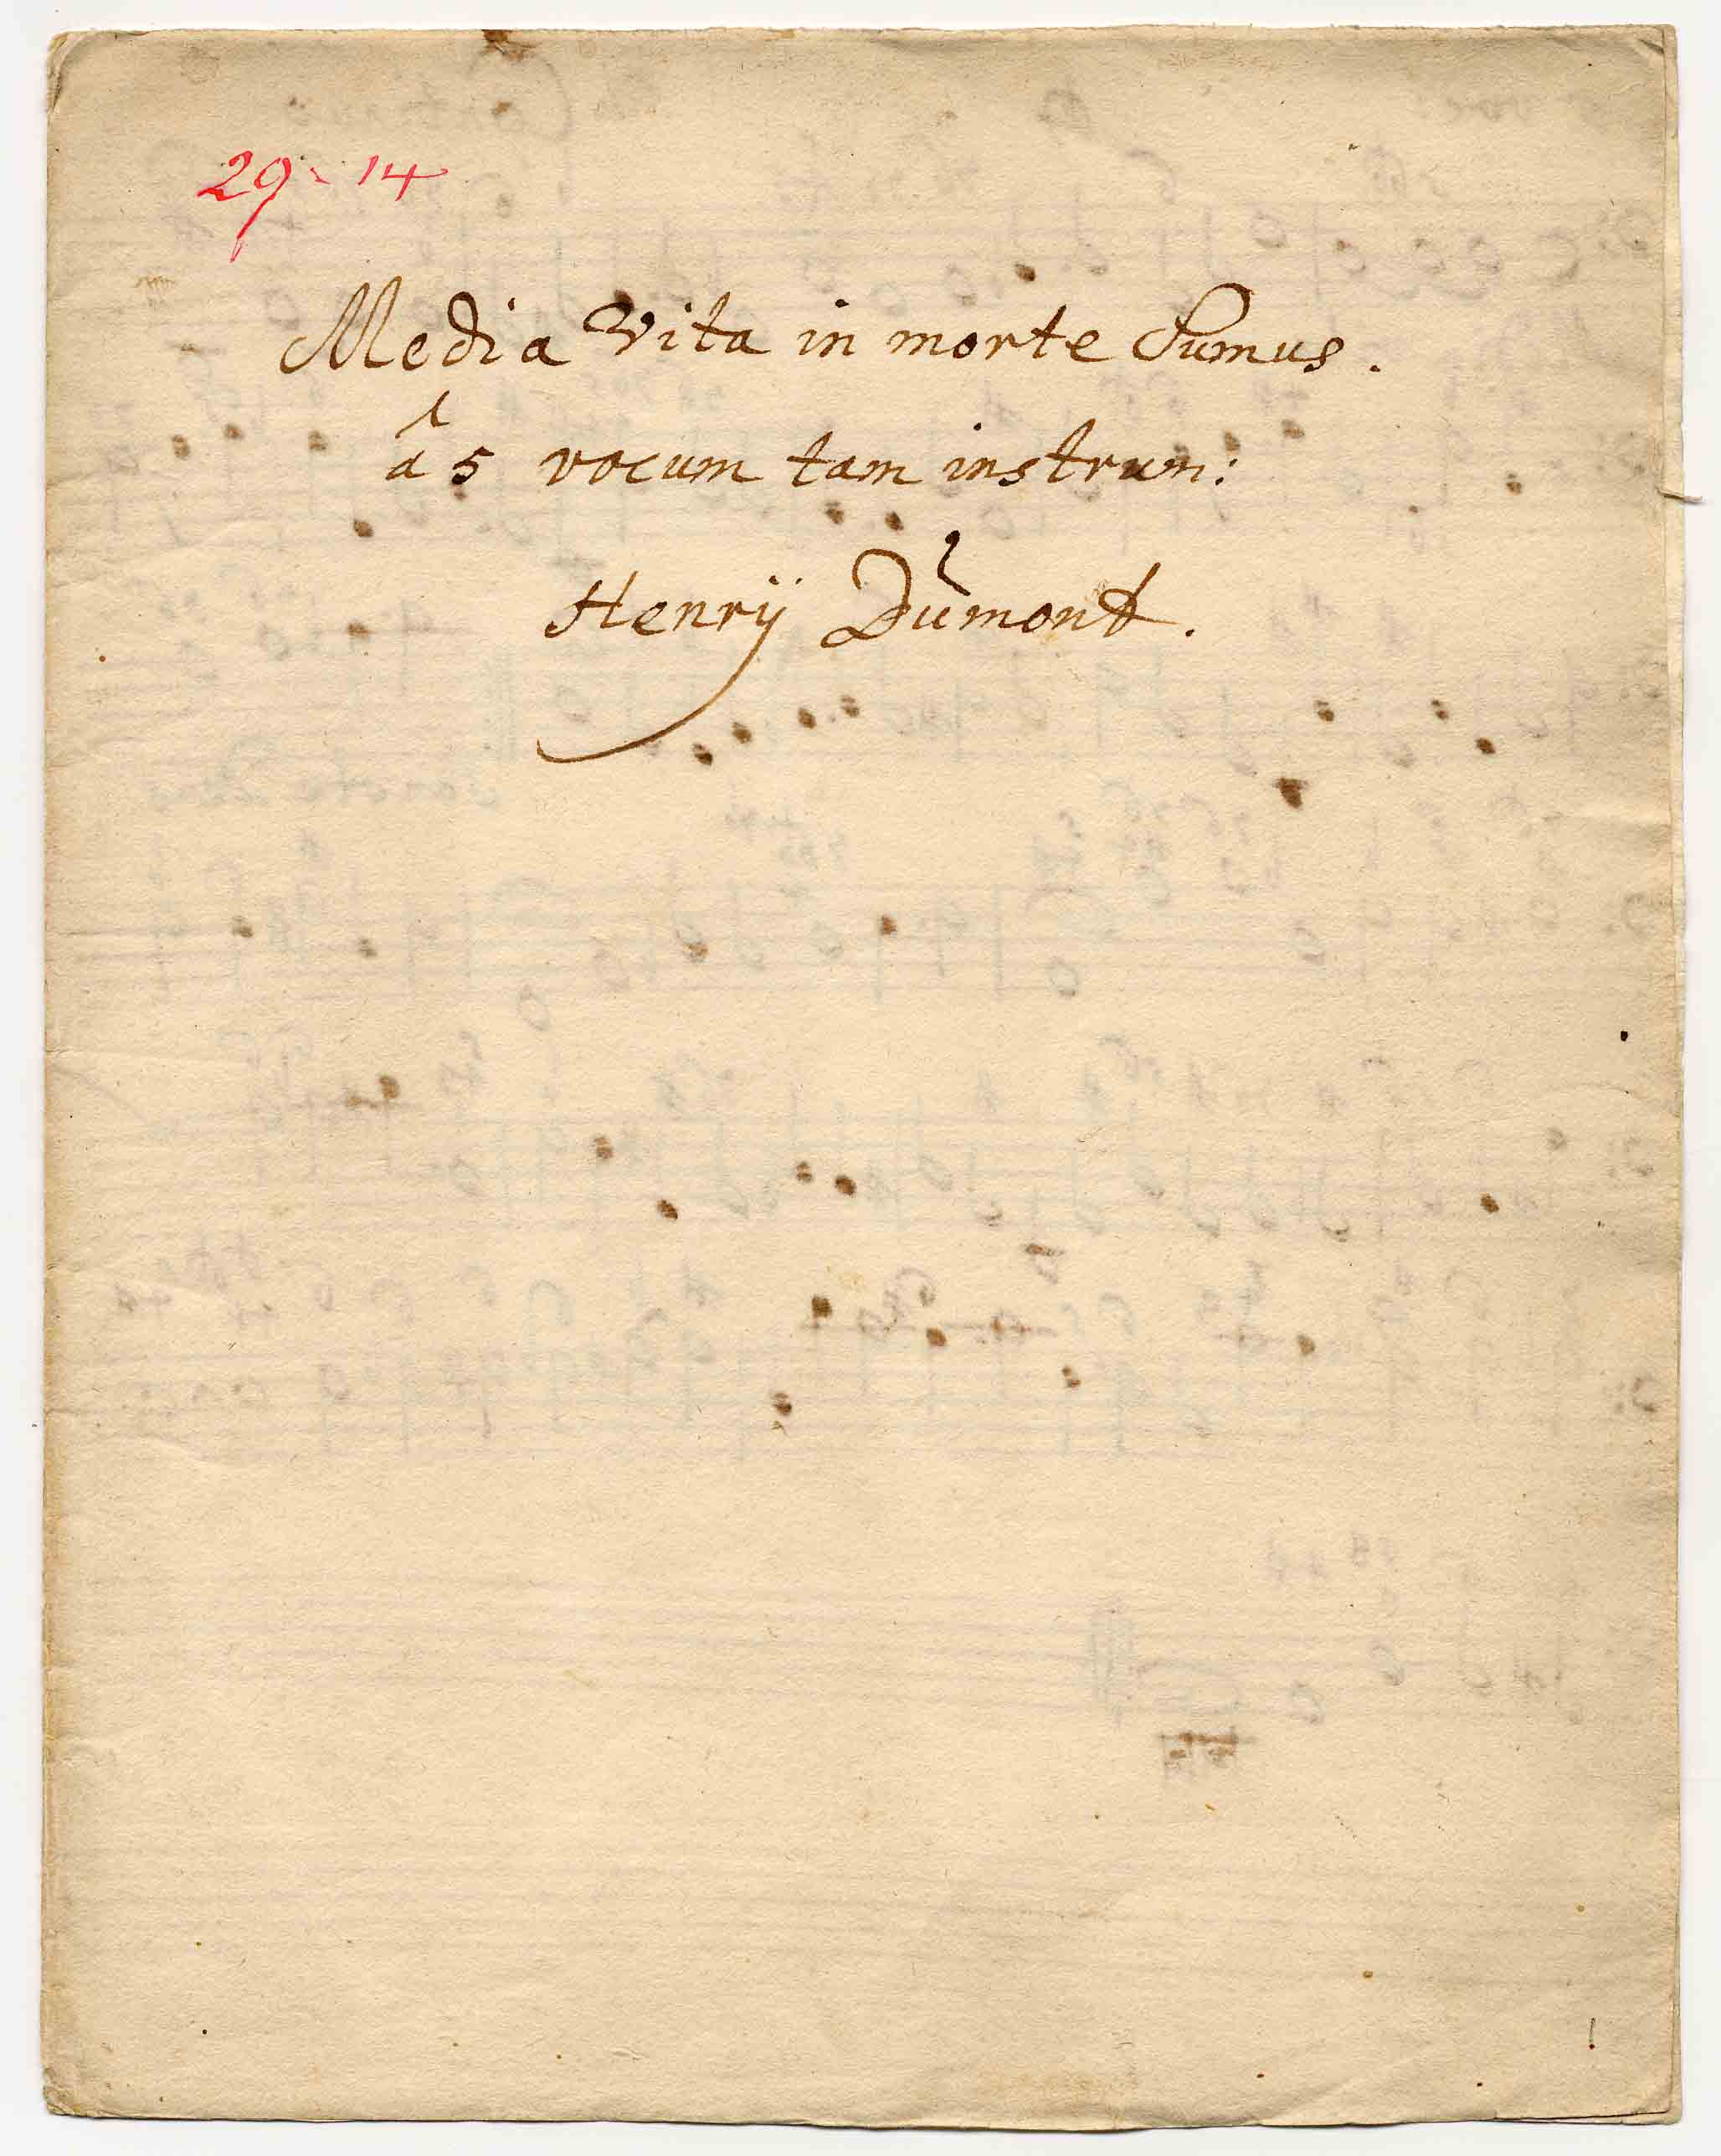 29 · 14
Media Vita in morte Sumus.
â 5 vocum tam instrum:
Henrÿ Dumont.